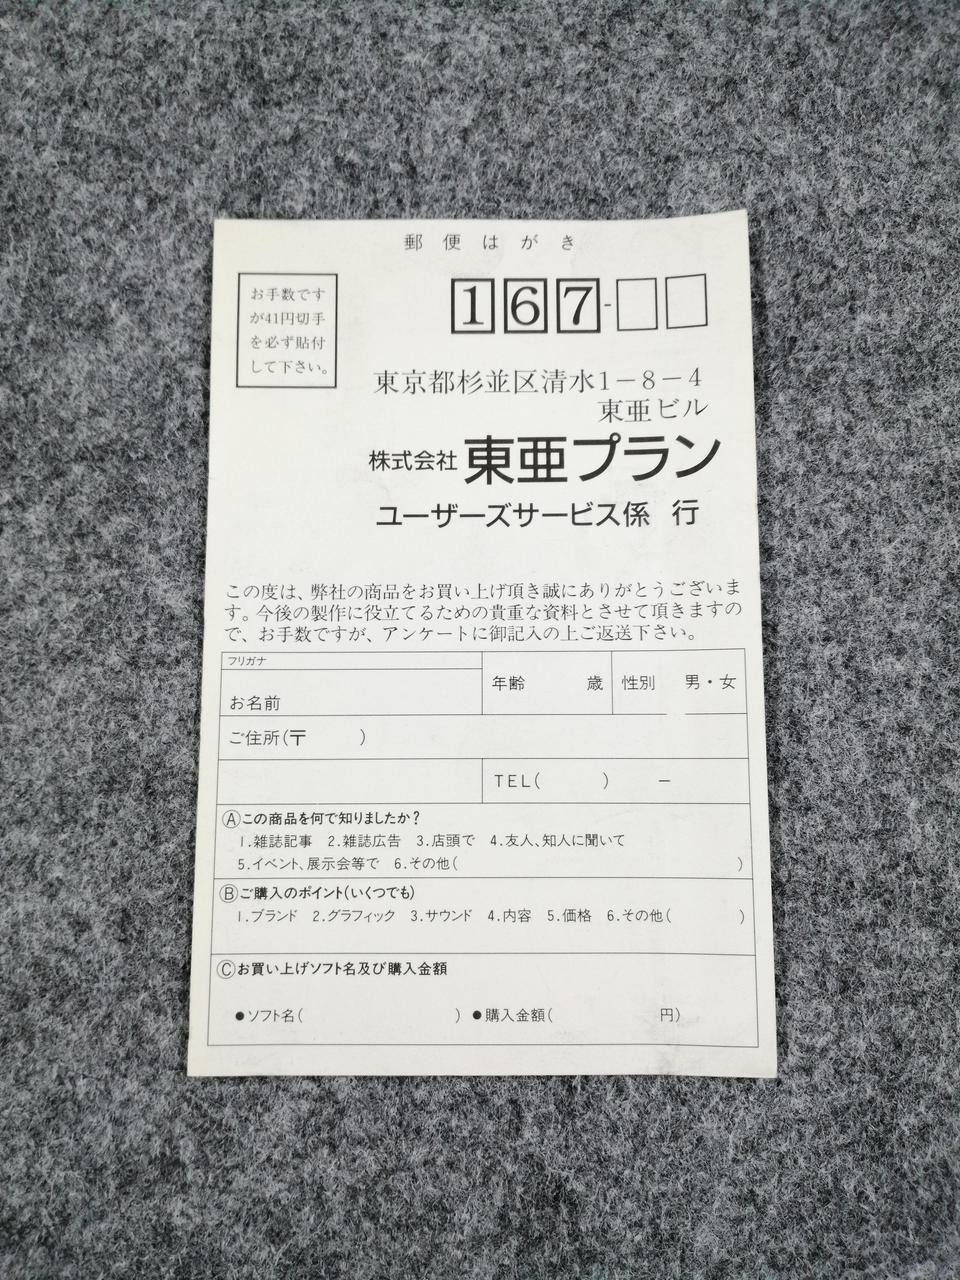 郵便はがき
お手数です
が41円切手
を必ず貼付
して下さい。
167-
東京都杉並区清水1－8－4
東亜ビル
株式会社 東亜プラン
ユーザーズサービス係 行
この度は、弊社の商品をお買い上げ頂き誠にありがとうございま
す。今後の製作に役立てるための貴重な資料とさせて頂きますの
で、お手数ですが、アンケートに御記入の上ご返送下さい。
フリガナ
お名前
年齢 歳 性別 男・女
ご住所(〒 )
TEL( ) －
Ⓐこの商品を何で知りましたか?
1.雑誌記事 2.雑誌広告 3.店頭で 4.友人、知人に聞いて
5.イベント、展示会等で 6.その他( )
Ⓑご購入のポイント(いくつでも)
1.ブランド 2.グラフィック 3.サウンド 4.内容 5.価格 6.その他( )
Ⓒお買い上げソフト名及び購入金額
●ソフト名( ) ●購入金額( 円)